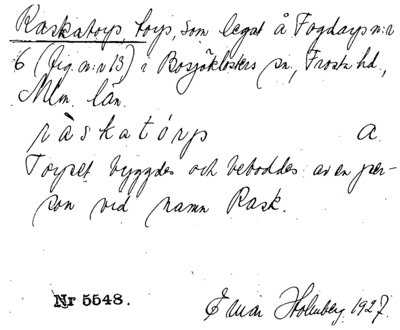 Raskatorp, torp, som legat å Fogdarp n:r
6 (fig. n:r 13) i Bosjöklosters sn., Frosta hd.,
Mlm. län.
ràskatórp a.
Torpet byggdes och beboddes av en per-
son vid namn Rask.
Nr 5548. Einar Holmberg. 1927.